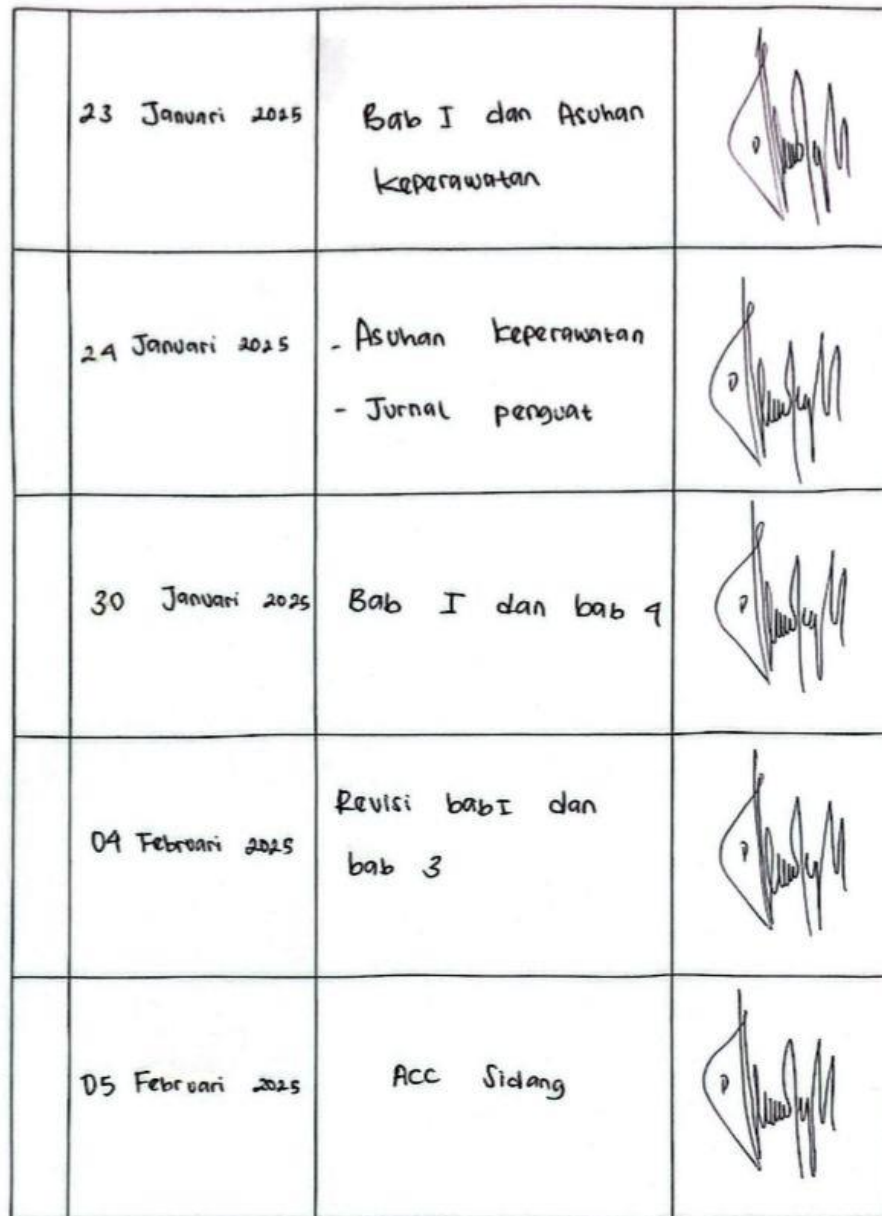 23 Januari 2025
Bab I dan Asuhan
keperawatan
24 Januari 2025
- Asuhan keperawatan
- Jurnal penguat
30 Januari 2025
Bab I dan bab 4
04 Februari 2025
Revisi bab I dan
bab 3
05 Februari 2025
ACC Sidang